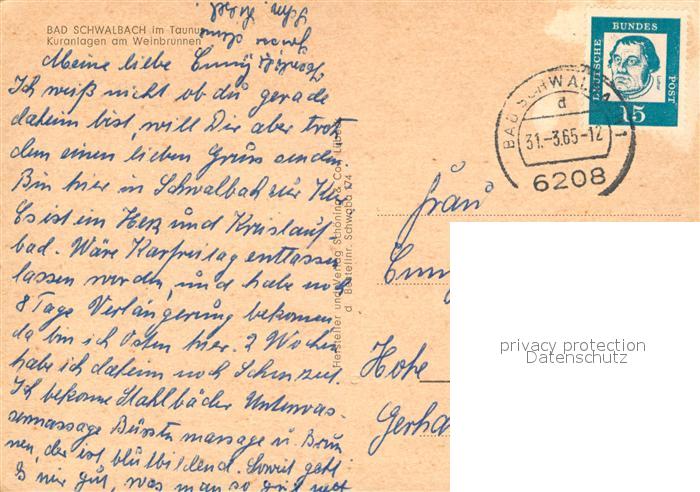 BAD SCHWALBACH im Taunus
Kuranlagen am Weinbrunnen
Meine liebe Enny
Ich weiß nicht ob du gerade
daheim bist, will Dir aber trotz
dem einen lieben Gruss senden
Bin hier in Schwalbach zur Kur
Es ist ein Herz und Kreislauf
bad. Wäre Karfreitag entlassen
lassen worden, und habe noch
8 Tage Verlängerung bekommen,
da bin ich Ostern hier. 2 Wochen
habe ich daheim noch Schonzeit.
Ich bekome Stahlbäder Unterwas-
sermassage Bürsten massage u. Brun
nen, der ist blutbildend. Soweit geht
es mir gut, was man so
Hersteller und Verlag Schöning & Co., Lübeck
d Bestellnr. Schwaba 124
DEUTSCHE
BUNDES
POST
15
BAD SCHWALBACH 1
d
31.-3.65-12
6208
Frau
Enny
Hohe
Gerha
privacy protection
Datenschutz